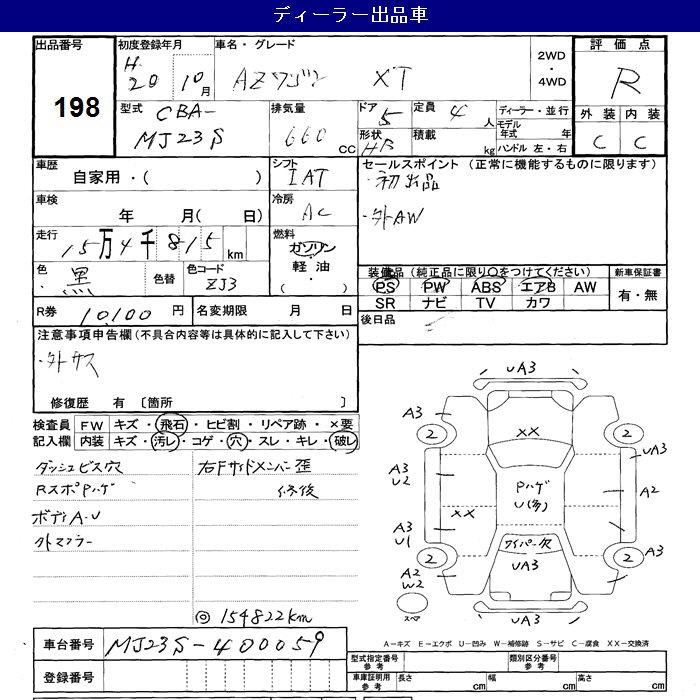 ディーラー出品車
出品番号
198
初度登録年月
H20 10月
車名・グレード
AZワゴン XT
2WD
・
4WD
評価点
R
外装 内装
C C
型式
CBA-
MJ23S
排気量
660 cc
ドア 5
形状 HB
定員 4 人
積載 kg
ディーラー・並行
モデル年式 年
ハンドル 左・右
車歴
自家用・( )
シフト
IAT
セールスポイント (正常に機能するものに限ります)
・初出品
・外AW
車検
年 月( 日)
冷房
AC
走行
15万4千815km
燃料
ガソリン
・
軽油
・
( )
色
黒
色替
色コード
ZJ3
装備品 (純正品に限り○をつけてください)
PS PW ABS エアB AW
SR ナビ TV カワ
新車保証書
有・無
R券 10,100円
名変期限 月 日
後日品
注意事項申告欄(不具合内容等は具体的に記入して下さい)
・外サス
修復歴 有 〔箇所 〕
検査員記入欄
FW キズ・飛石・ヒビ割・リペア跡・×要
内装 キズ・汚レ・コゲ・穴・スレ・キレ・破レ
ダッシュビス穴
RスポPハゲ
ボディA・U
外マフラー
右Fサイドメンバー歪
修復
◎ 154822km
UA3
A3
2
XX
2
UA3
A3
U2
Pハゲ
U(多)
A2
A3
U1
XX
ワイパー欠
2
UA3
2
A3
A2
W2
スペア
UA3
A-キズ E-エクボ U-凹み W-補修跡 S-サビ C-腐食 XX-交換済
車台番号 MJ23S-400059
登録番号
型式指定番号
参考
類別区分番号
参考
車庫証明用
参考
長さ cm 幅 cm 高さ cm